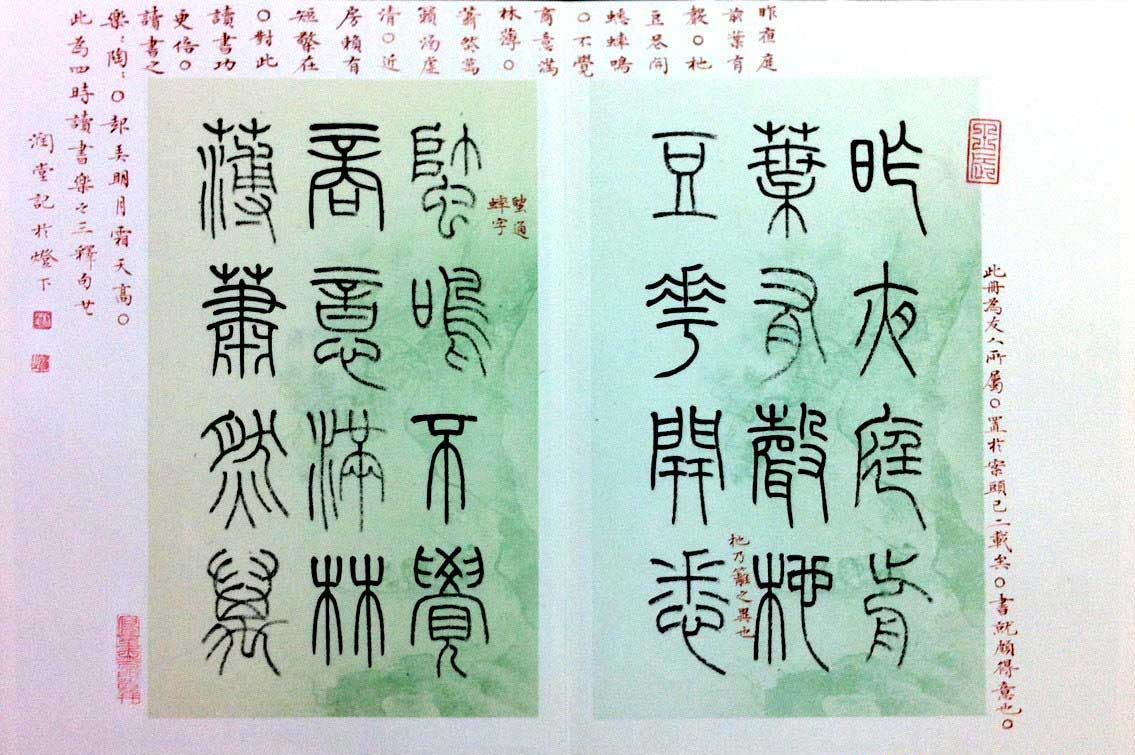 此冊為友人所屬○置於案頭已二載矣○書就頗得意也○
昨夜庭前
葉有聲杝
杝乃籬之異也
豆華開悉
䘹鳴不覺
䘹通
蟀字
商意滿林
薄蕭然萬
昨夜庭
前葉有
聲○杝
豆花開
蟋蟀鳴
○不覺
商意滿
林薄○
蕭然萬
籟涵虛
清○近
房賴有
短檠在
○對此
讀書功
更倍○
讀書之
樂〻陶〻○起弄明月霜天高○
此為四時讀書樂之三釋句廿
潤堂記於燈下